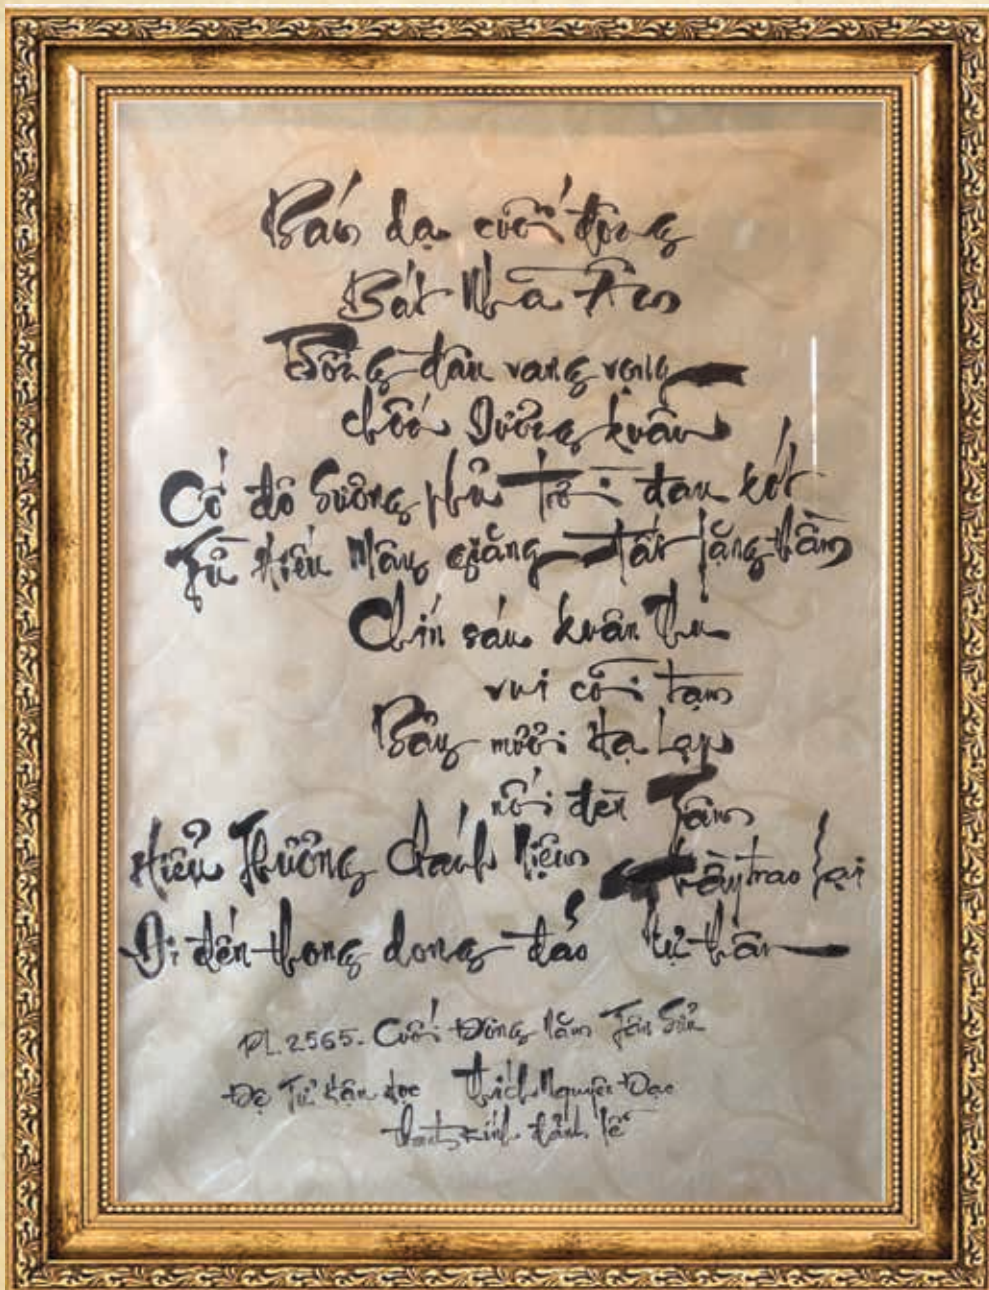 Bán dạ cuối đông
Bát Nhã Âm
đâu vang vọng
chốn Dương Xuân
Cố đô Sương phủ Trời đau xót
Từ Hiếu Mây giăng đất lặng thầm
Chín sáu Xuân thu
vui cõi tạm
Bảy mươi Hạ Lạp
nối đèn Tâm
Hiểu Thương Chánh Niệm thầy trao lại
Đi đến thong dong đáo tự thân
PL.2565. Cuối Đông năm Tân Sửu
Đệ Tử hậu học Thích Nguyên Đạo
thành kính đảnh lễ